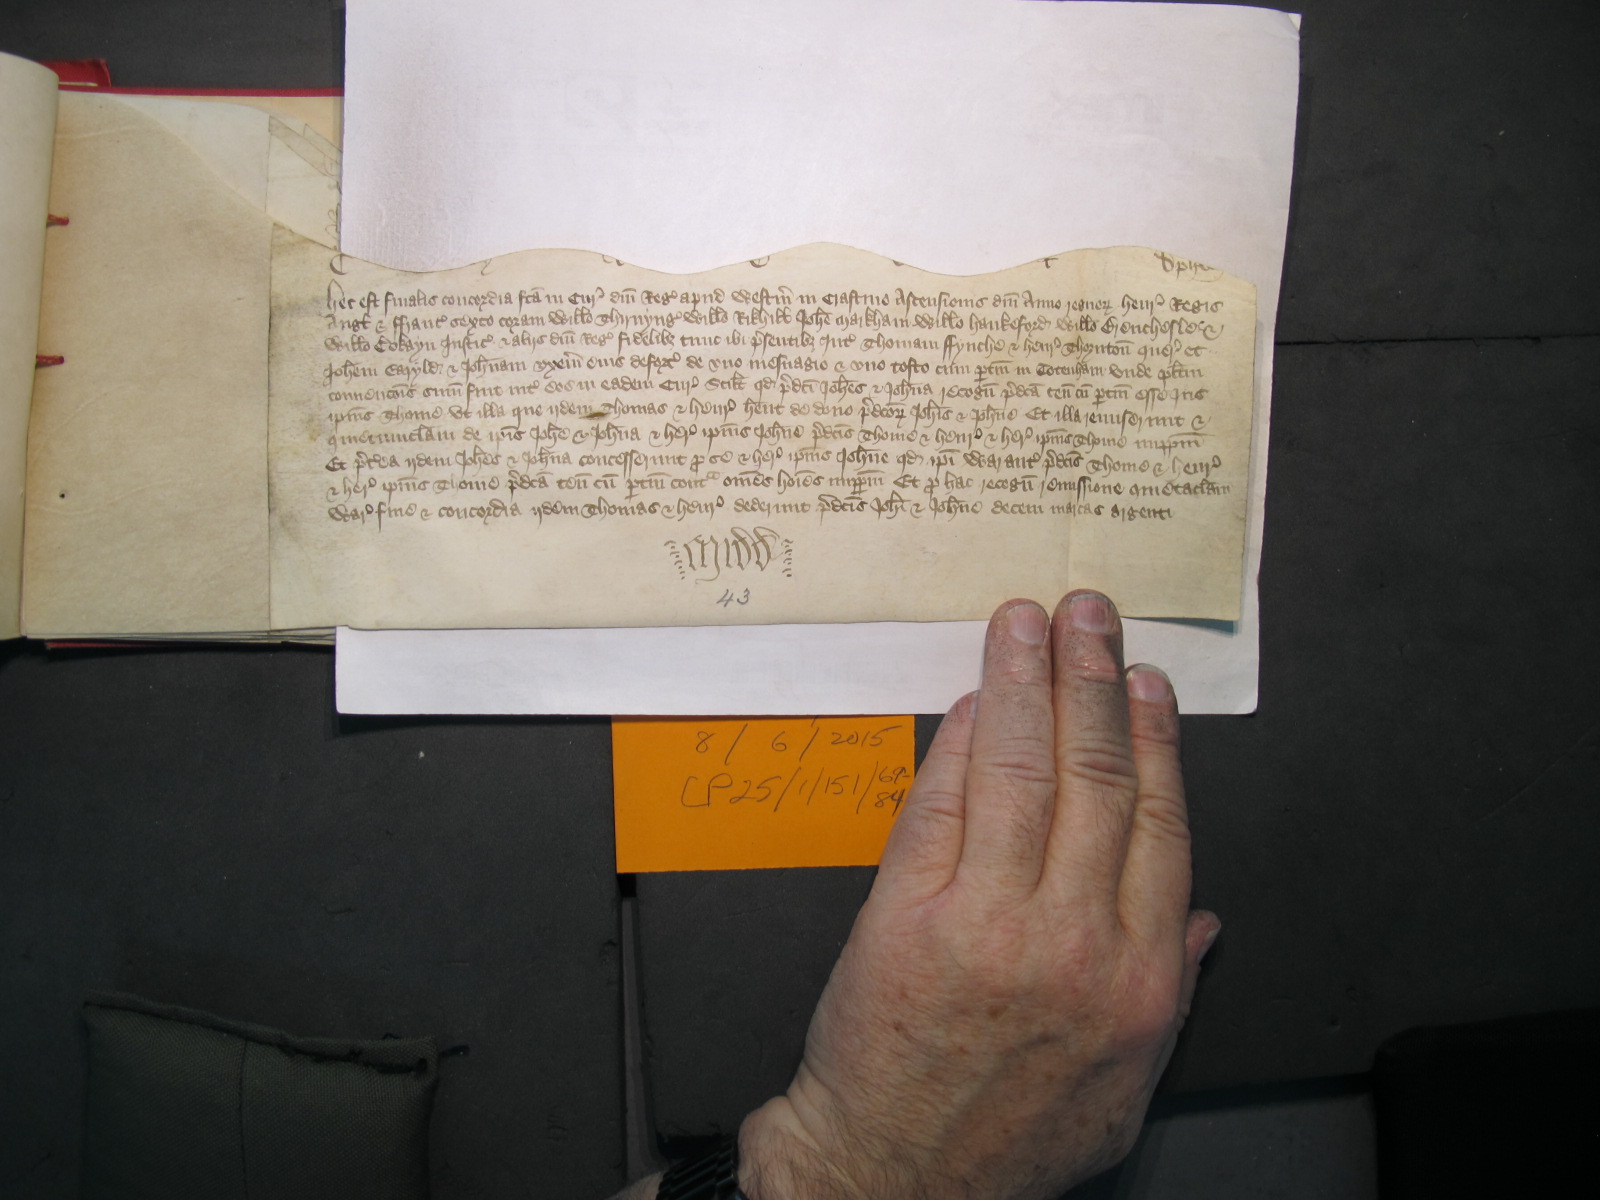 Hec est finalis concordia fc̄a in Cur' dn̄i Reg' apud Westm̄ in Crastino Ascensionis dn̄i Anno regnorȝ Henr' Regis
Angl' & ffranc' sexto coram Willo Thirnyng' Willo Rikhill Joh̄e Markham Willo Hankeford Willo Brenchesle &
Willo Cokayn Justic' & aliis dn̄i Reg' fidelibȝ tunc ibi p̄sentibȝ Int' Thomam ffynche & Henr' Thornton quer' et
Joh̄em & Joh̄nam uxem̄ eius deforc' de uno mesuagio & uno tofto cum ptin̄ in Totenham unde pl̄itm
convencōis sum̄ fuit int' eos in eadem Cur' Scil̄t qd p̄dc̄i Joh̄es & Joh̄na recogn̄ p̄dc̄a ten̄ cū ptin̄ esse Jus
ip̄ius Thome ut illa que ijdem Thomas & Henr' hēnt de dono p̄dc̄orȝ Joh̄is & Joh̄ne Et illa remiserunt &
quietumclam̄ de ip̄is Joh̄e & Joh̄na & her' ip̄ius Joh̄ne p̄dc̄is Thome & Henr' & her' ip̄ius Thome imppm̄
Et p̄t'ea ijdem Joh̄es & Joh̄na concesserunt p se & her' ip̄ius Joh̄ne qd ip̄i Warant' p̄dc̄is Thome & Henr'
& her' ip̄ius Thome p̄dc̄a ten̄ cū ptin̄ cont̄ omēs hoīes imppm̄ Et p hac recogn̄ remissione quietaclam̄
War' fine & concordia ijdem Thomas & Henr' dederunt p̄dc̄is Joh̄i & Joh̄ne decem marcas argenti
Midd
43
8 / 6 / 2015
CP25/1/151/69-
84